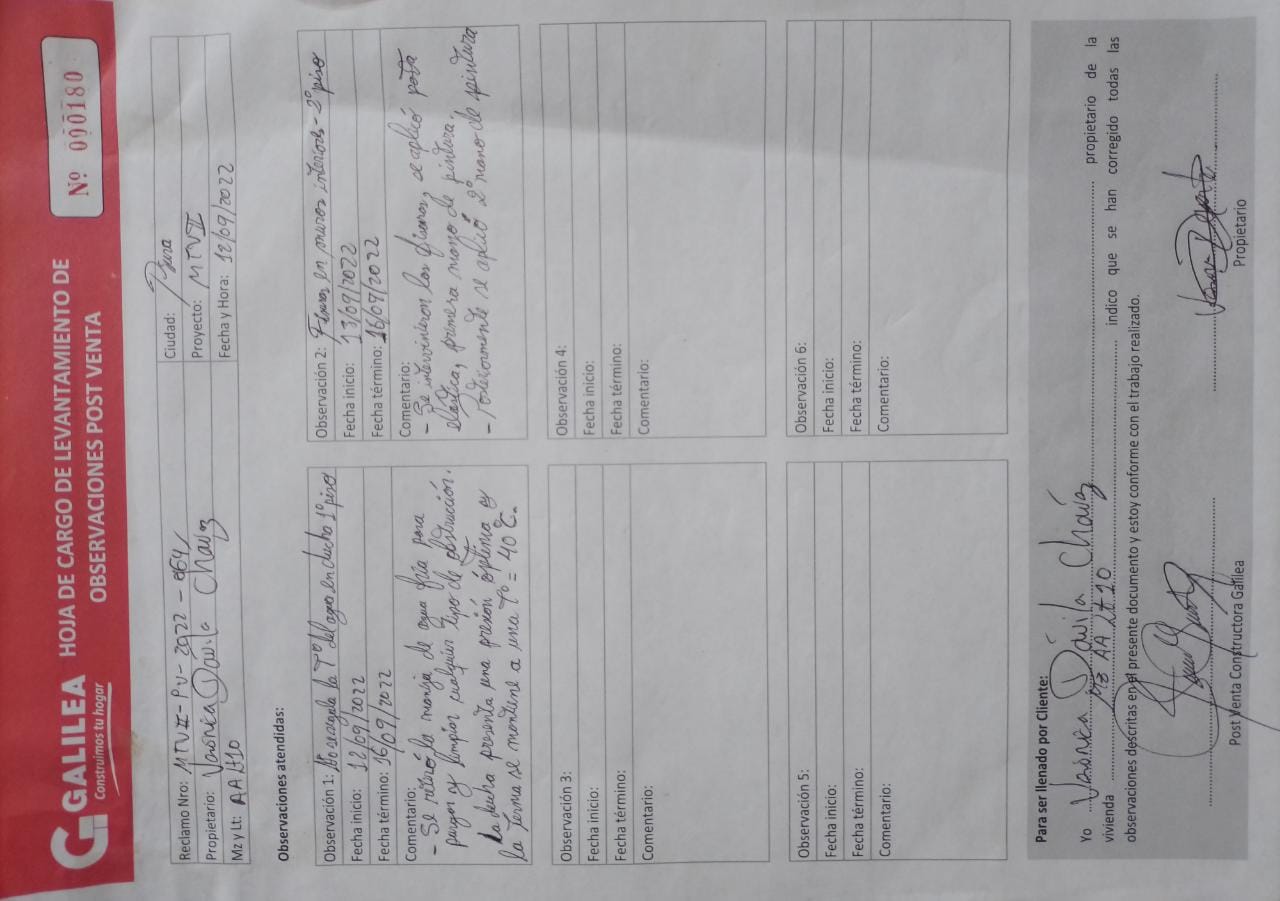 GALILEA
Construimos tu hogar
HOJA DE CARGO DE LEVANTAMIENTO DE
OBSERVACIONES POST VENTA
Nº 000180
Reclamo Nro: MTVII-PV-2022-064
Ciudad: Piura
Propietario: Veronica Davila Chavez
Proyecto: MTVII
Mz y Lt: AA Lt 10
Fecha y Hora: 12/09/2022
Observaciones atendidas:
Observación 1: No se regula la Tº del agua en ducha 1º piso
Fecha inicio: 12/09/2022
Fecha término: 16/09/2022
Comentario:
- Se retiró la manija de agua fría para
purgar y limpiar cualquier tipo de obstrucción.
La ducha presenta una presión óptima y
la terma se mantiene a una Tº = 40 ºC.
Observación 2: Fisuras en muros interiores - 2º piso
Fecha inicio: 13/09/2022
Fecha término: 16/09/2022
Comentario:
- Se intervinieron las fisuras, se aplicó pasta
elástica, primera mano de pintura.
- Posteriormente se aplicó 2º mano de pintura
Observación 3:
Fecha inicio:
Fecha término:
Comentario:
Observación 4:
Fecha inicio:
Fecha término:
Comentario:
Observación 5:
Fecha inicio:
Fecha término:
Comentario:
Observación 6:
Fecha inicio:
Fecha término:
Comentario:
Para ser llenado por Cliente:
Yo Veronica Dávila Chávez propietario de la
vivienda Mz AA Lt 10 indico que se han corregido todas las
observaciones descritas en el presente documento y estoy conforme con el trabajo realizado.
Post Venta Constructora Galilea
Propietario